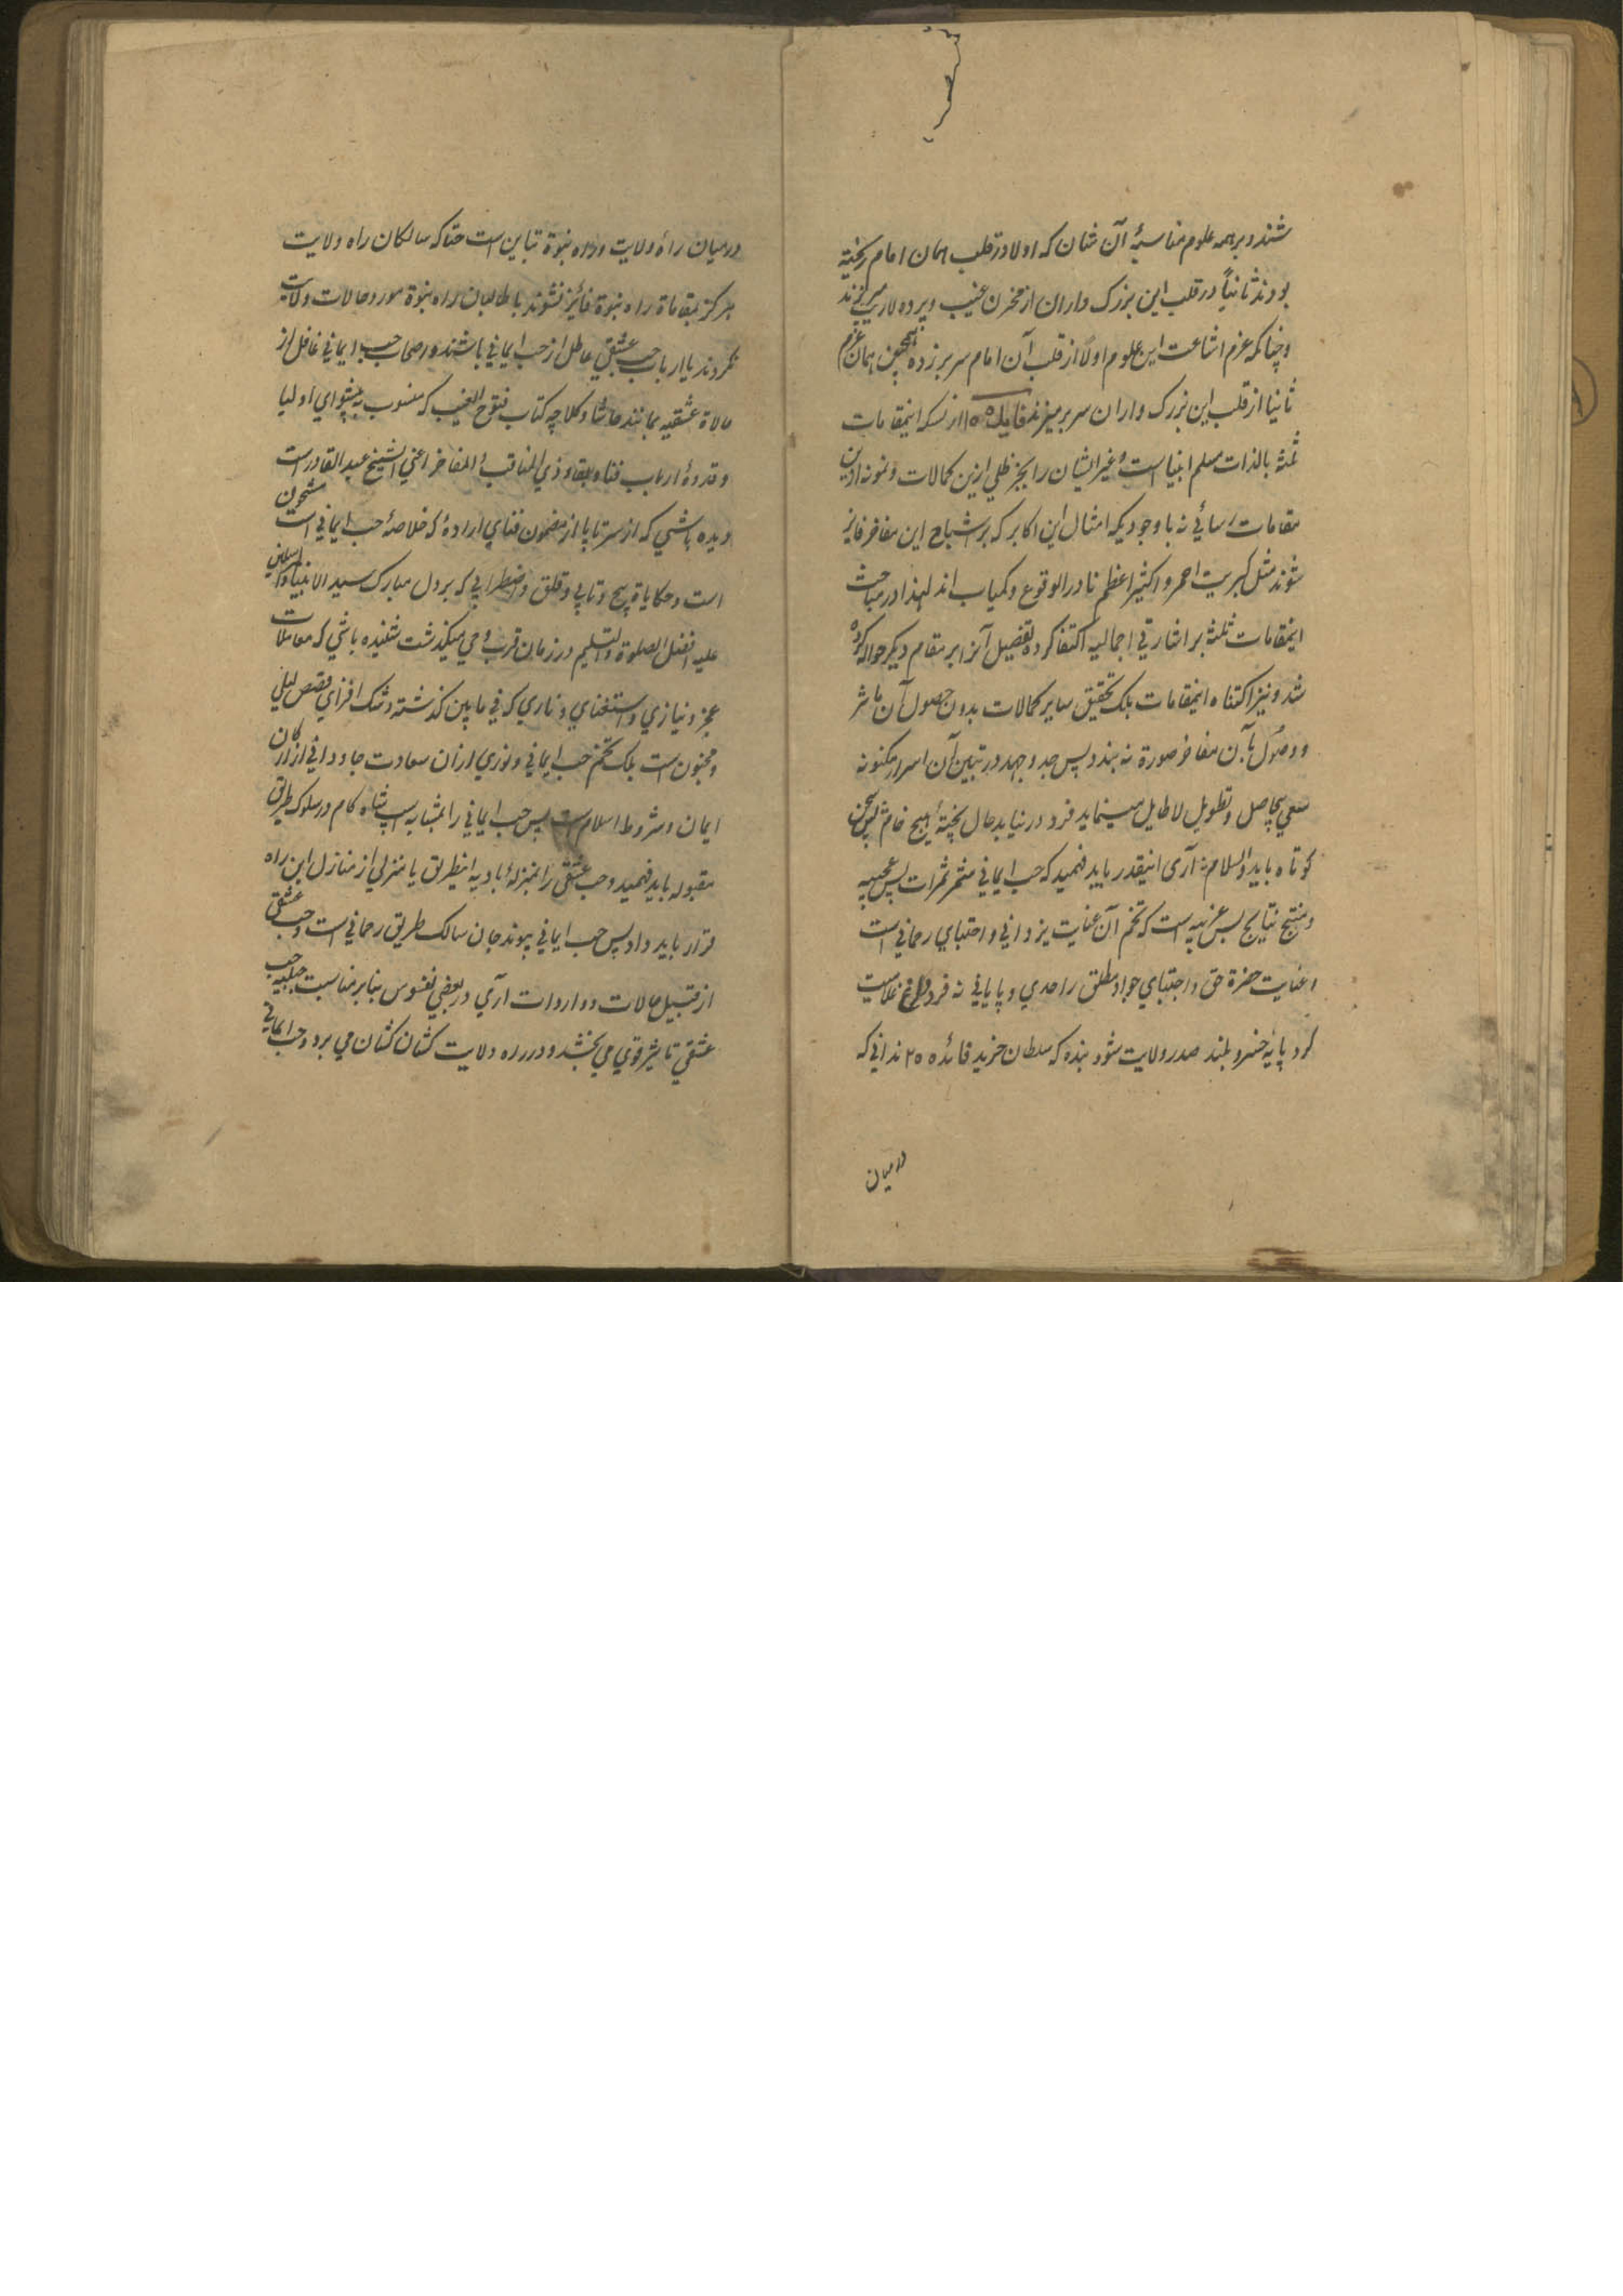 شند و بر همه علوم مناسبهٔ آن شان که اولا در قلب همان امام ریخته
بودند ثانیاً در قلب این بزرک داران از مخزن غیب و پرده لاریب میریزند
و چنانکه عزم اشاعت این علوم اولاً از قلب آن امام سر بر زده همچنین همان عزم
ثانیا از قلب این بزرک واران سر بر میزند فایده ۱۵ از نسکه اینمقامات
ثلثه بالذات مسلم انبیا است و غیر ایشان را بجز ظلی ازین کمالات و نمونه ازین
مقامات رسائی نه با وجودیکه امثال این اکابر که بر اشباح این مفاخر فایز
شوند مثل کبریت احمر و اکثیر اعظم نادر الوقوع و کمیاب اند لهذا در مباحث
اینمقامات ثلثه بر اشارتی اجمالیه اکتفا کرده تفصیل آنرا بر مقام دیکر حواله کرده
شد و نیز اکتناه اینمقامات بلک تحقیق سایر کمالات بدون حصول آن مآثر
و وصول بآن مفاخر صورة نه بندد پس جد و جهد در تبین آن اسرار مکنونه
سعی بیحاصل و تطویل لا طایل مینماید فرد در نیابد حال پخته هیچ خام پس سخن
کوتاه باید و السلام آری اینقدر باید فهمید که حب ایمانی مثمر ثمرات بس عجیبه
و منتج نتایج بس غریبه است که تخم آن عنایت یزدانی و اجتبای رحمانی است
و عنایت حضرة حق و اجتبای جواد مطلق را حدی و پایانی نه فرد داغ غلامیت
کرد پایه خسرو بلند صدر ولایت شود بنده که سلطان خرید فائده ۲۵ ندانی که
درمیان
درمیان راه ولایت و راه نبوة تباین است حتا که سالکان راه ولایت
هرکز بمقاماة راه نبوة فائز نشوند یا طالبان راه نبوة مورد حالات ولایت
نکردند یا ارباب حب عشقی عاطل از حب ایمانی باشند و اصحاب حب ایمانی غافل از
حالاة عشقیه بمانند حاشا و کلا چه کتاب فتوح الغیب که منسوب به پیشوای اولیا
و قدوهٔ ارباب فنا و بقا ذی المناقب و المفاخر اعنی الشیخ عبد القادر است
دیده باشی که از سر تا پا از مضمون فنای ارادهٔ که خلاصهٔ حب ایمانی است مشحون
است و حکایاة پیچ و تابی و قلق و اضطرابی که بر دل مبارک سید الانبیا و المرسلین
علیه افضل الصلوة و التسلیم در زمان قرب وحی میکذشت شنیده باشی که معاملات
عجز و نیازی و استغنای و نازی که فی مابین کذشته رشک افزای قصص لیلی
و مجنون است بلک تخم حب ایمانی و نوری ازان سعادت جاودانی از ارکان
ایمان و شروط اسلام است پس حب ایمانی را بمشابه اسپ شاه کام در سلوک طریق
مقبوله باید فهمید و حب عشقی را بمنزلهٔ بادیه اینطریق یا منزلی از منازل این راه
قرار باید داد پس حب ایمانی پیوند جان سالک طریق رحمانی است و حب عشقی
از قبیل حالات و واردات آری در بعضی نفوس بنابر مناسبت جبلیه حب
عشقی تاثیر قوی می بخشد و در راه ولایت کشان کشان می برد و حب ایمانی